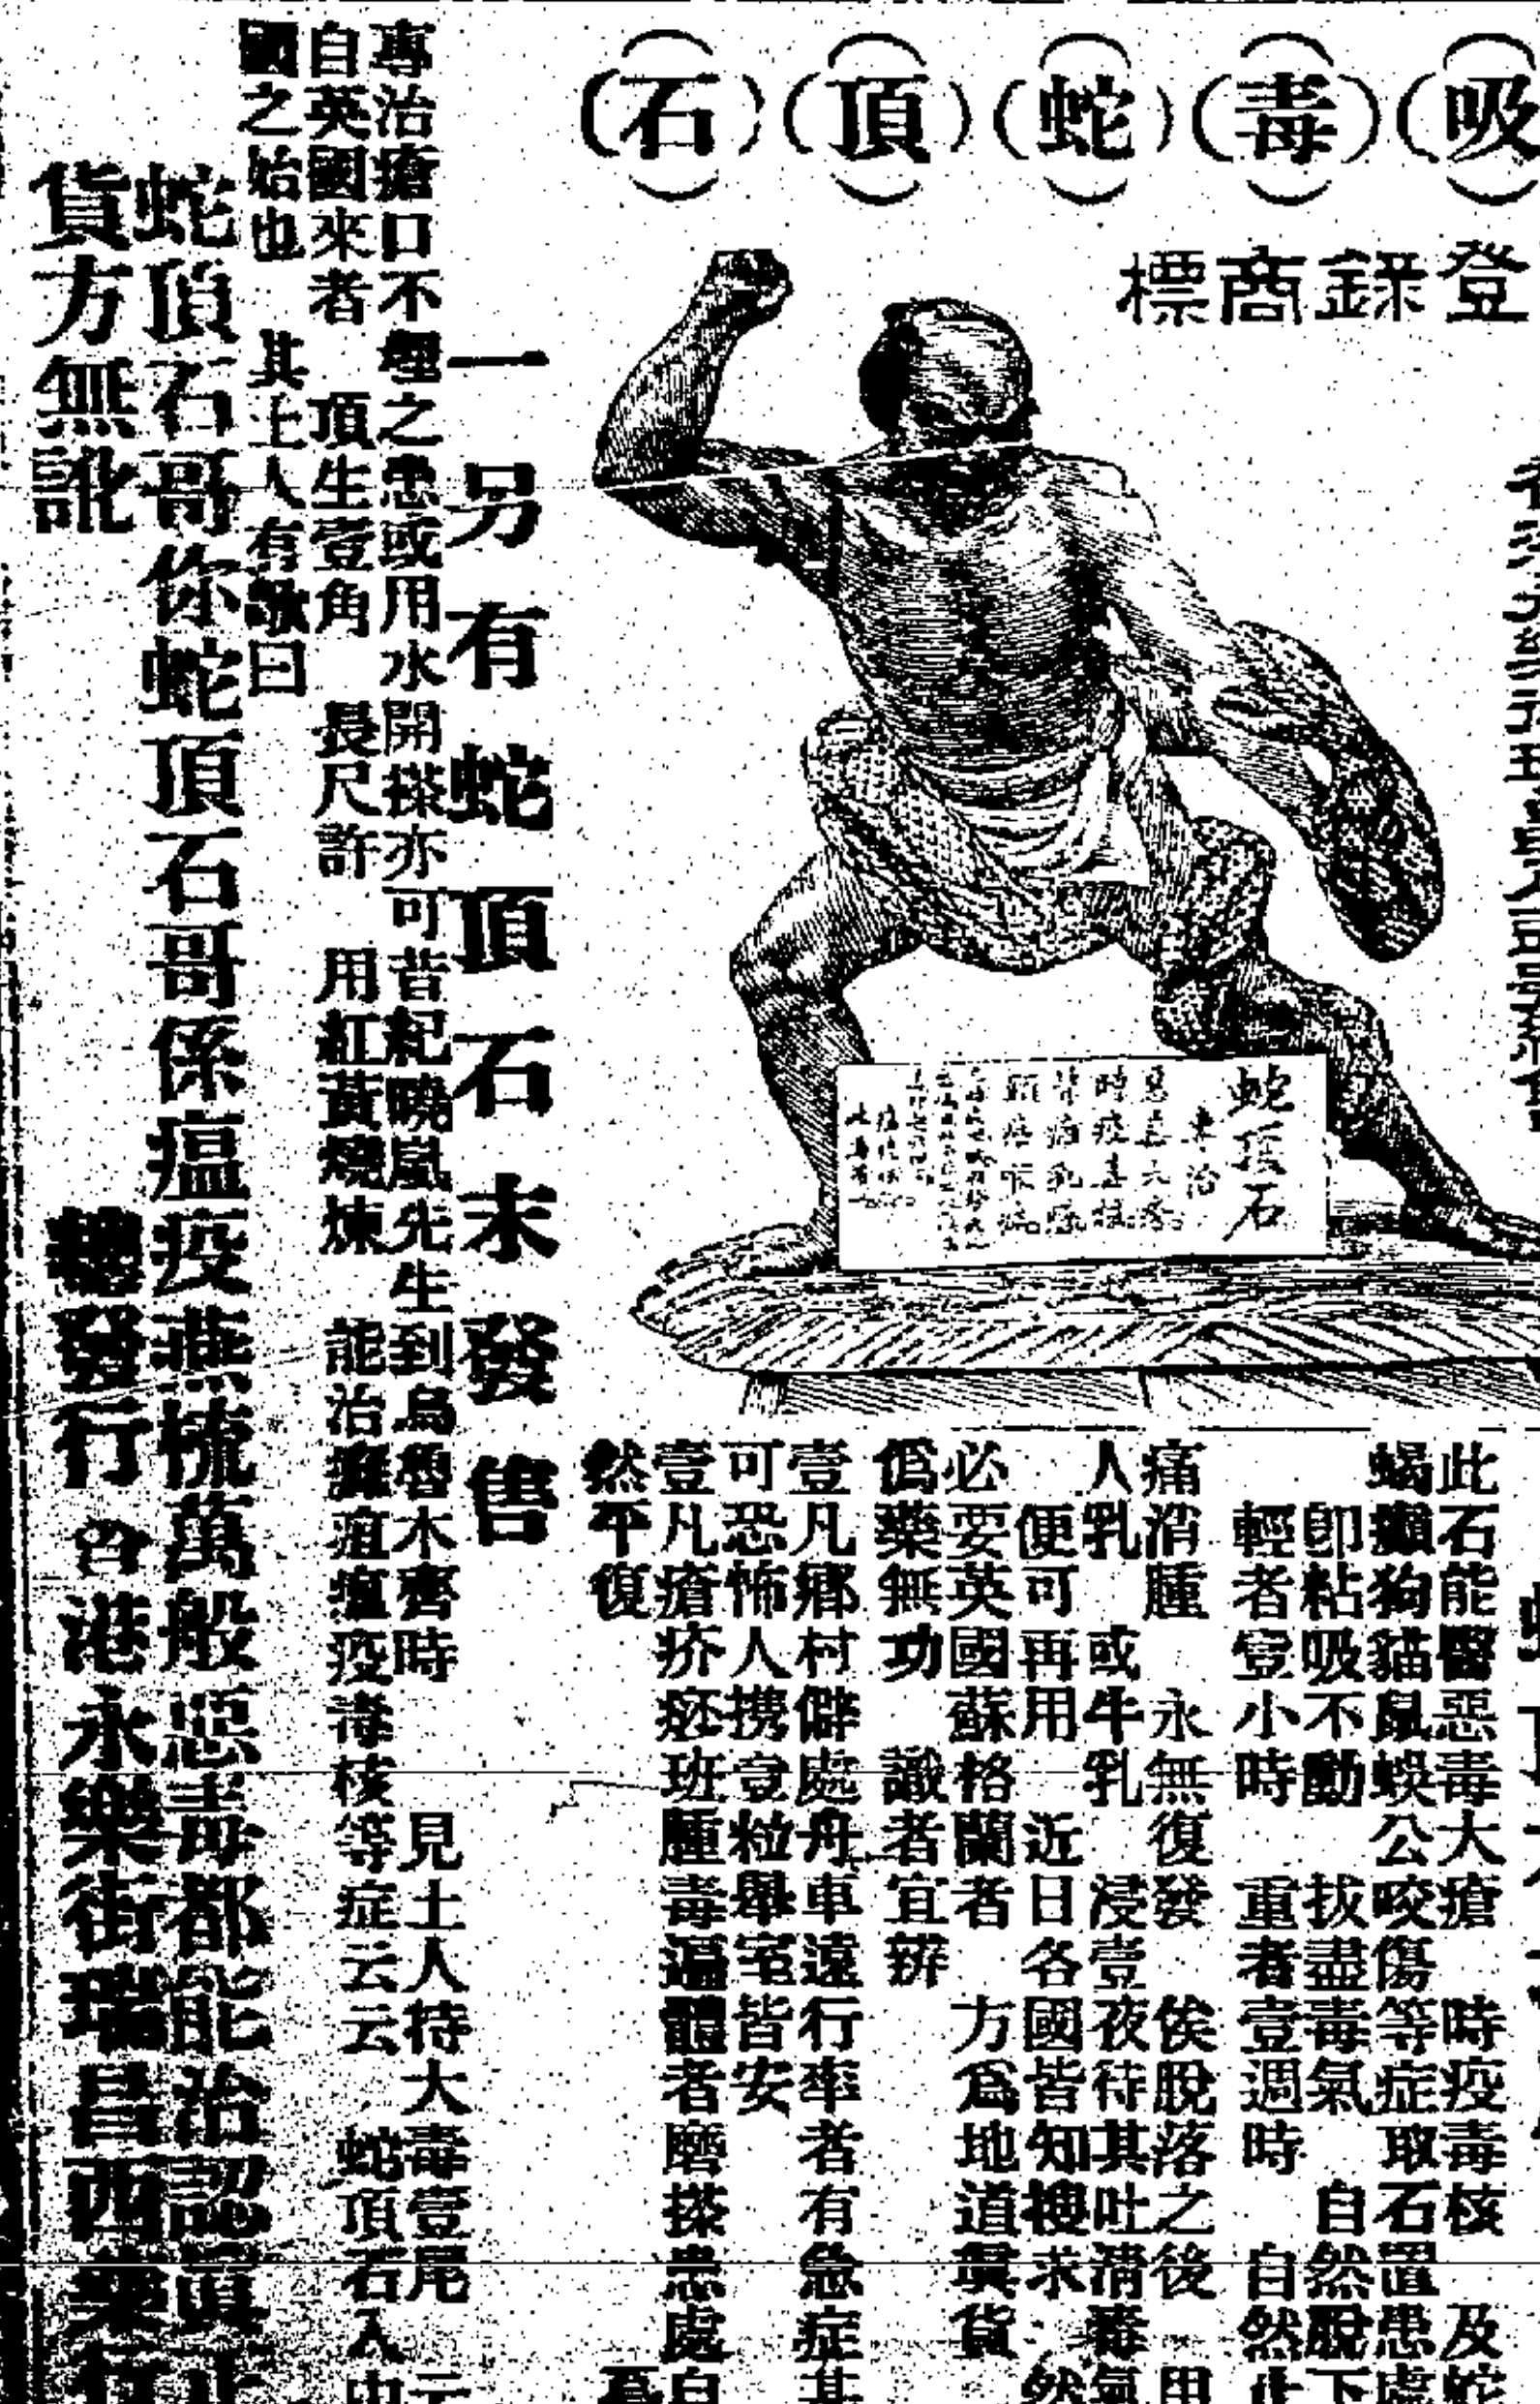 吸毒蛇頂石
登錄商標
蛇頂石
專治
此石能醫惡毒大瘡 時疫毒核 及蛇
蝎癲狗貓鼠蜈公咬傷等症取石置患處
即粘吸不動 拔盡毒氣 自然脫下
輕者壹小時 重者壹週時 自然
痛消腫 永無復發 俟脫落之後 用
人乳 或牛乳 浸壹夜待其吐清毒氣
便可再用 近日各國皆知搜求 然
必要英國蘇格蘭者 方為地道真貨
偽藥無功 識者宜辨
壹凡鄉村僻處舟車遠行率者有急症甚
可恐怖人携壹粒舉室皆安
壹凡瘡疥痧班腫毒遍體者磨搽患處自
然平復
一另有蛇頂石末發售
專治瘡口不埋之患或用水開搽亦可昔紀曉嵐先生到烏魯木齊時 見土人持大毒壹尾 云
自英國來者 頂生壹角 長尺許 用紅黃燒煉 能治癰疽瘟疫毒核等症云云 蛇頂石入中
國之始也 其土人有歌曰
蛇頂石哥你蛇頂石哥係瘟疫燕梳萬般惡毒都能治認真正
貨方無訛
總發行 香港永樂街瑞昌西藥行